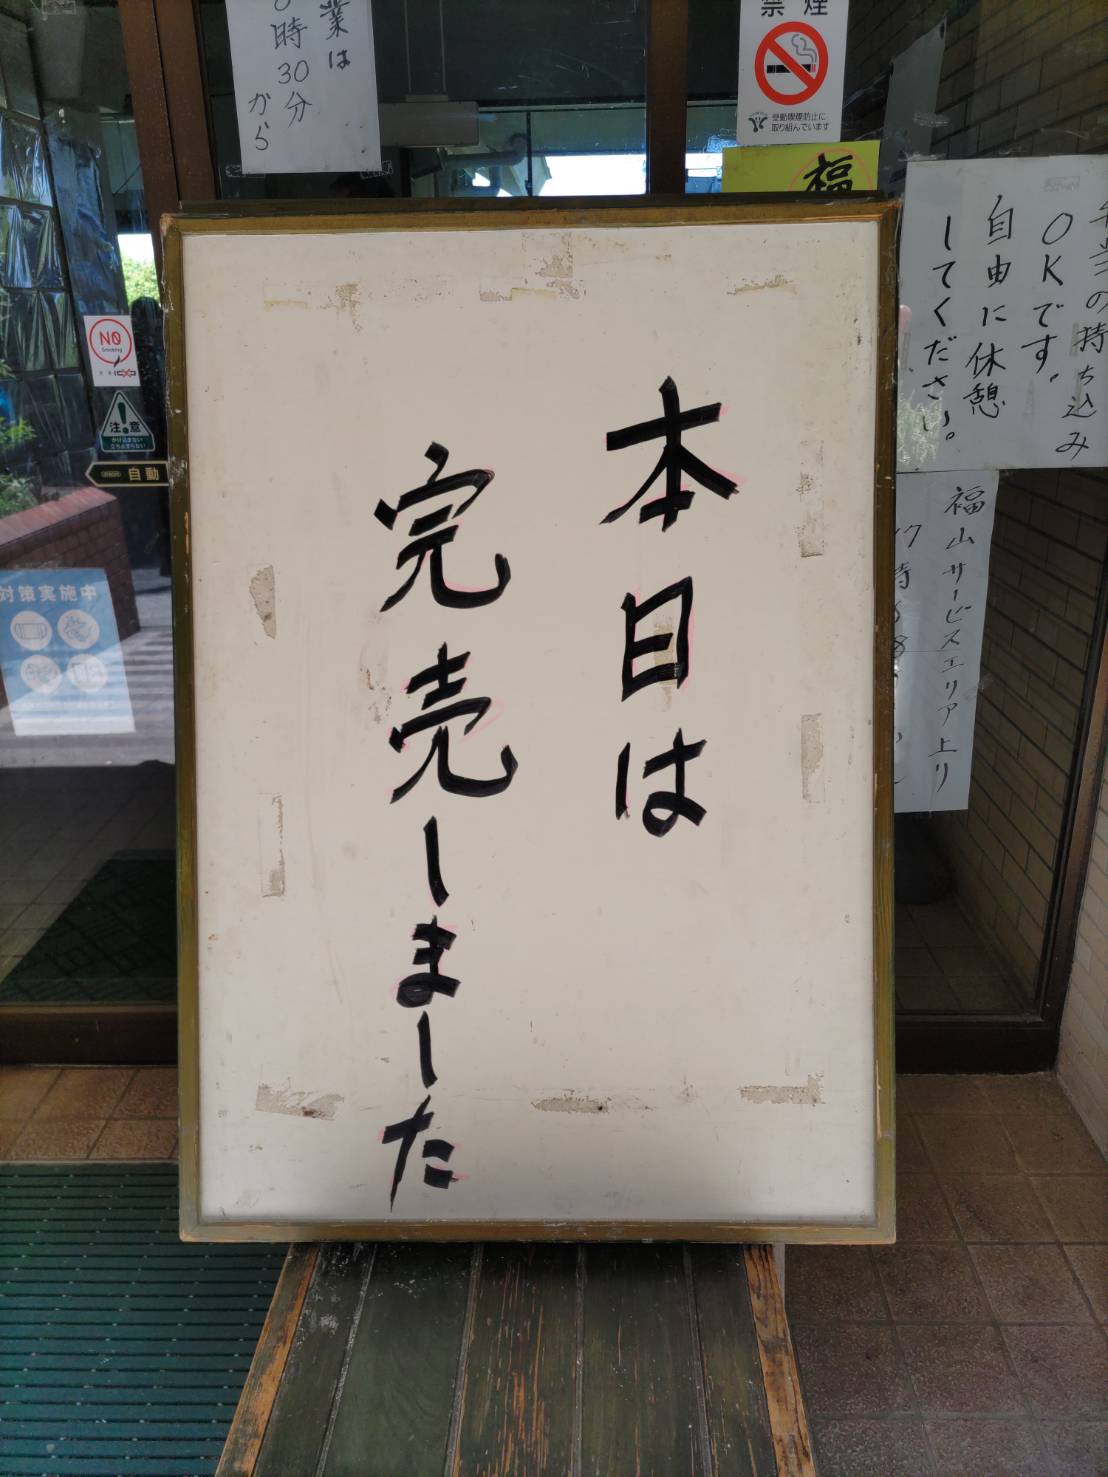 本日は
完売しました
業は
時30分
から
禁煙
受動喫煙防止に
取り組んでいます
福
の持ち込み
OKです。
自由に休憩
してください。
福山サービスエリア上り
NO
Smoking
注意
かけ込まない
立ち止まらない
自動
対策実施中